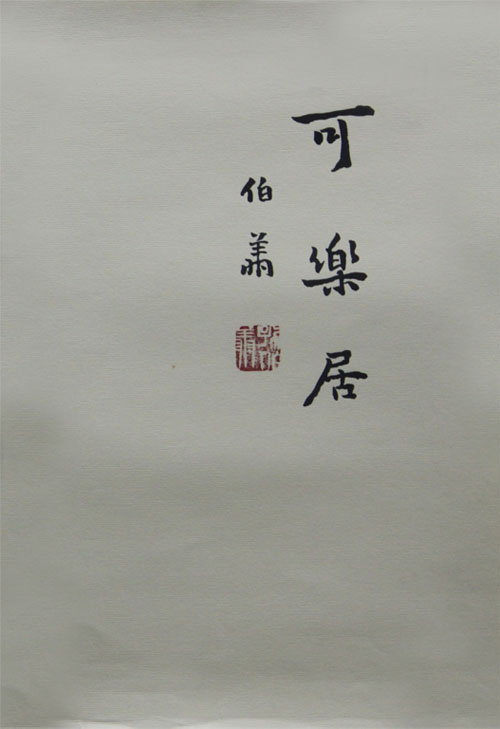 可樂居
伯蕭